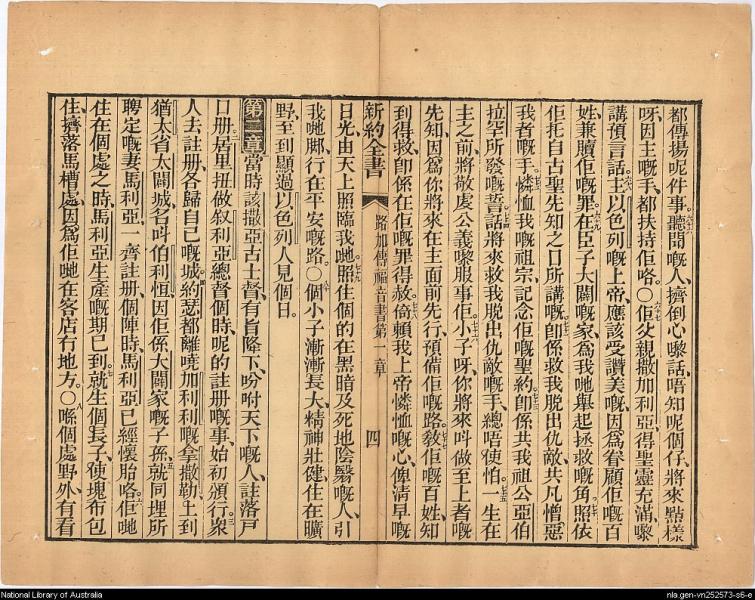 都傳揚呢件事、聽聞嘅人、擠倒心嚟話、唔知呢個仔、將來點樣
呀、因主嘅手、都扶持佢咯○佢父親撒加利亞得聖靈充滿、嚟
講預言話、主以色列嘅上帝、應該受讚美嘅、因爲眷顧佢嘅百
姓、兼贖佢嘅罪、在臣子大闢嘅家、爲我哋舉起拯救嘅角、照依
佢托自古聖先知之口所講嘅、卽係救我脫出仇敵共凡憎惡
我者嘅手、憐恤我嘅祖宗、記念佢嘅聖約、卽係共我祖公亞伯
拉罕所發嘅誓話、將來救我脫出仇敵嘅手、總唔使怕、一生在
主之前、將敬虔公義嚟服事佢、小子呀、你將來叫做至上者嘅
先知、因爲你將來在主面前先行、預備佢嘅路、敎佢嘅百姓、知
到得救、卽係在佢嘅罪得赦、倚賴我上帝憐恤嘅心、俾淸早嘅
新約全書 路加傳福音書第一章 四
日光、由天上照臨我哋、照住個的在黑暗及死地陰翳嘅人、引
我哋脚、行在平安嘅路○個小子漸漸長大、精神壯健、住在曠
野、至到顯過以色列人見個日。
第二章當時該撒亞古士督、有旨降下、吩咐天下嘅人、註落戶
口册、居里扭做敘利亞總督個時、呢的註册嘅事、始初頒行、衆
人去註册、各歸自己嘅城、約瑟都離嘵加利利嘅拿撒勒、上到
猶太省、太闢城、名叫伯利恒、因佢係大闢家嘅子孫、就同埋所
聘定嘅妻馬利亞、一齊註册、個陣時、馬利亞已經懷胎咯、佢哋
住在個處之時、馬利亞生產嘅期已到、就生個長子、使塊布包
住、擠落馬槽處、因爲佢哋在客店冇地方。○喺個處野外、有看